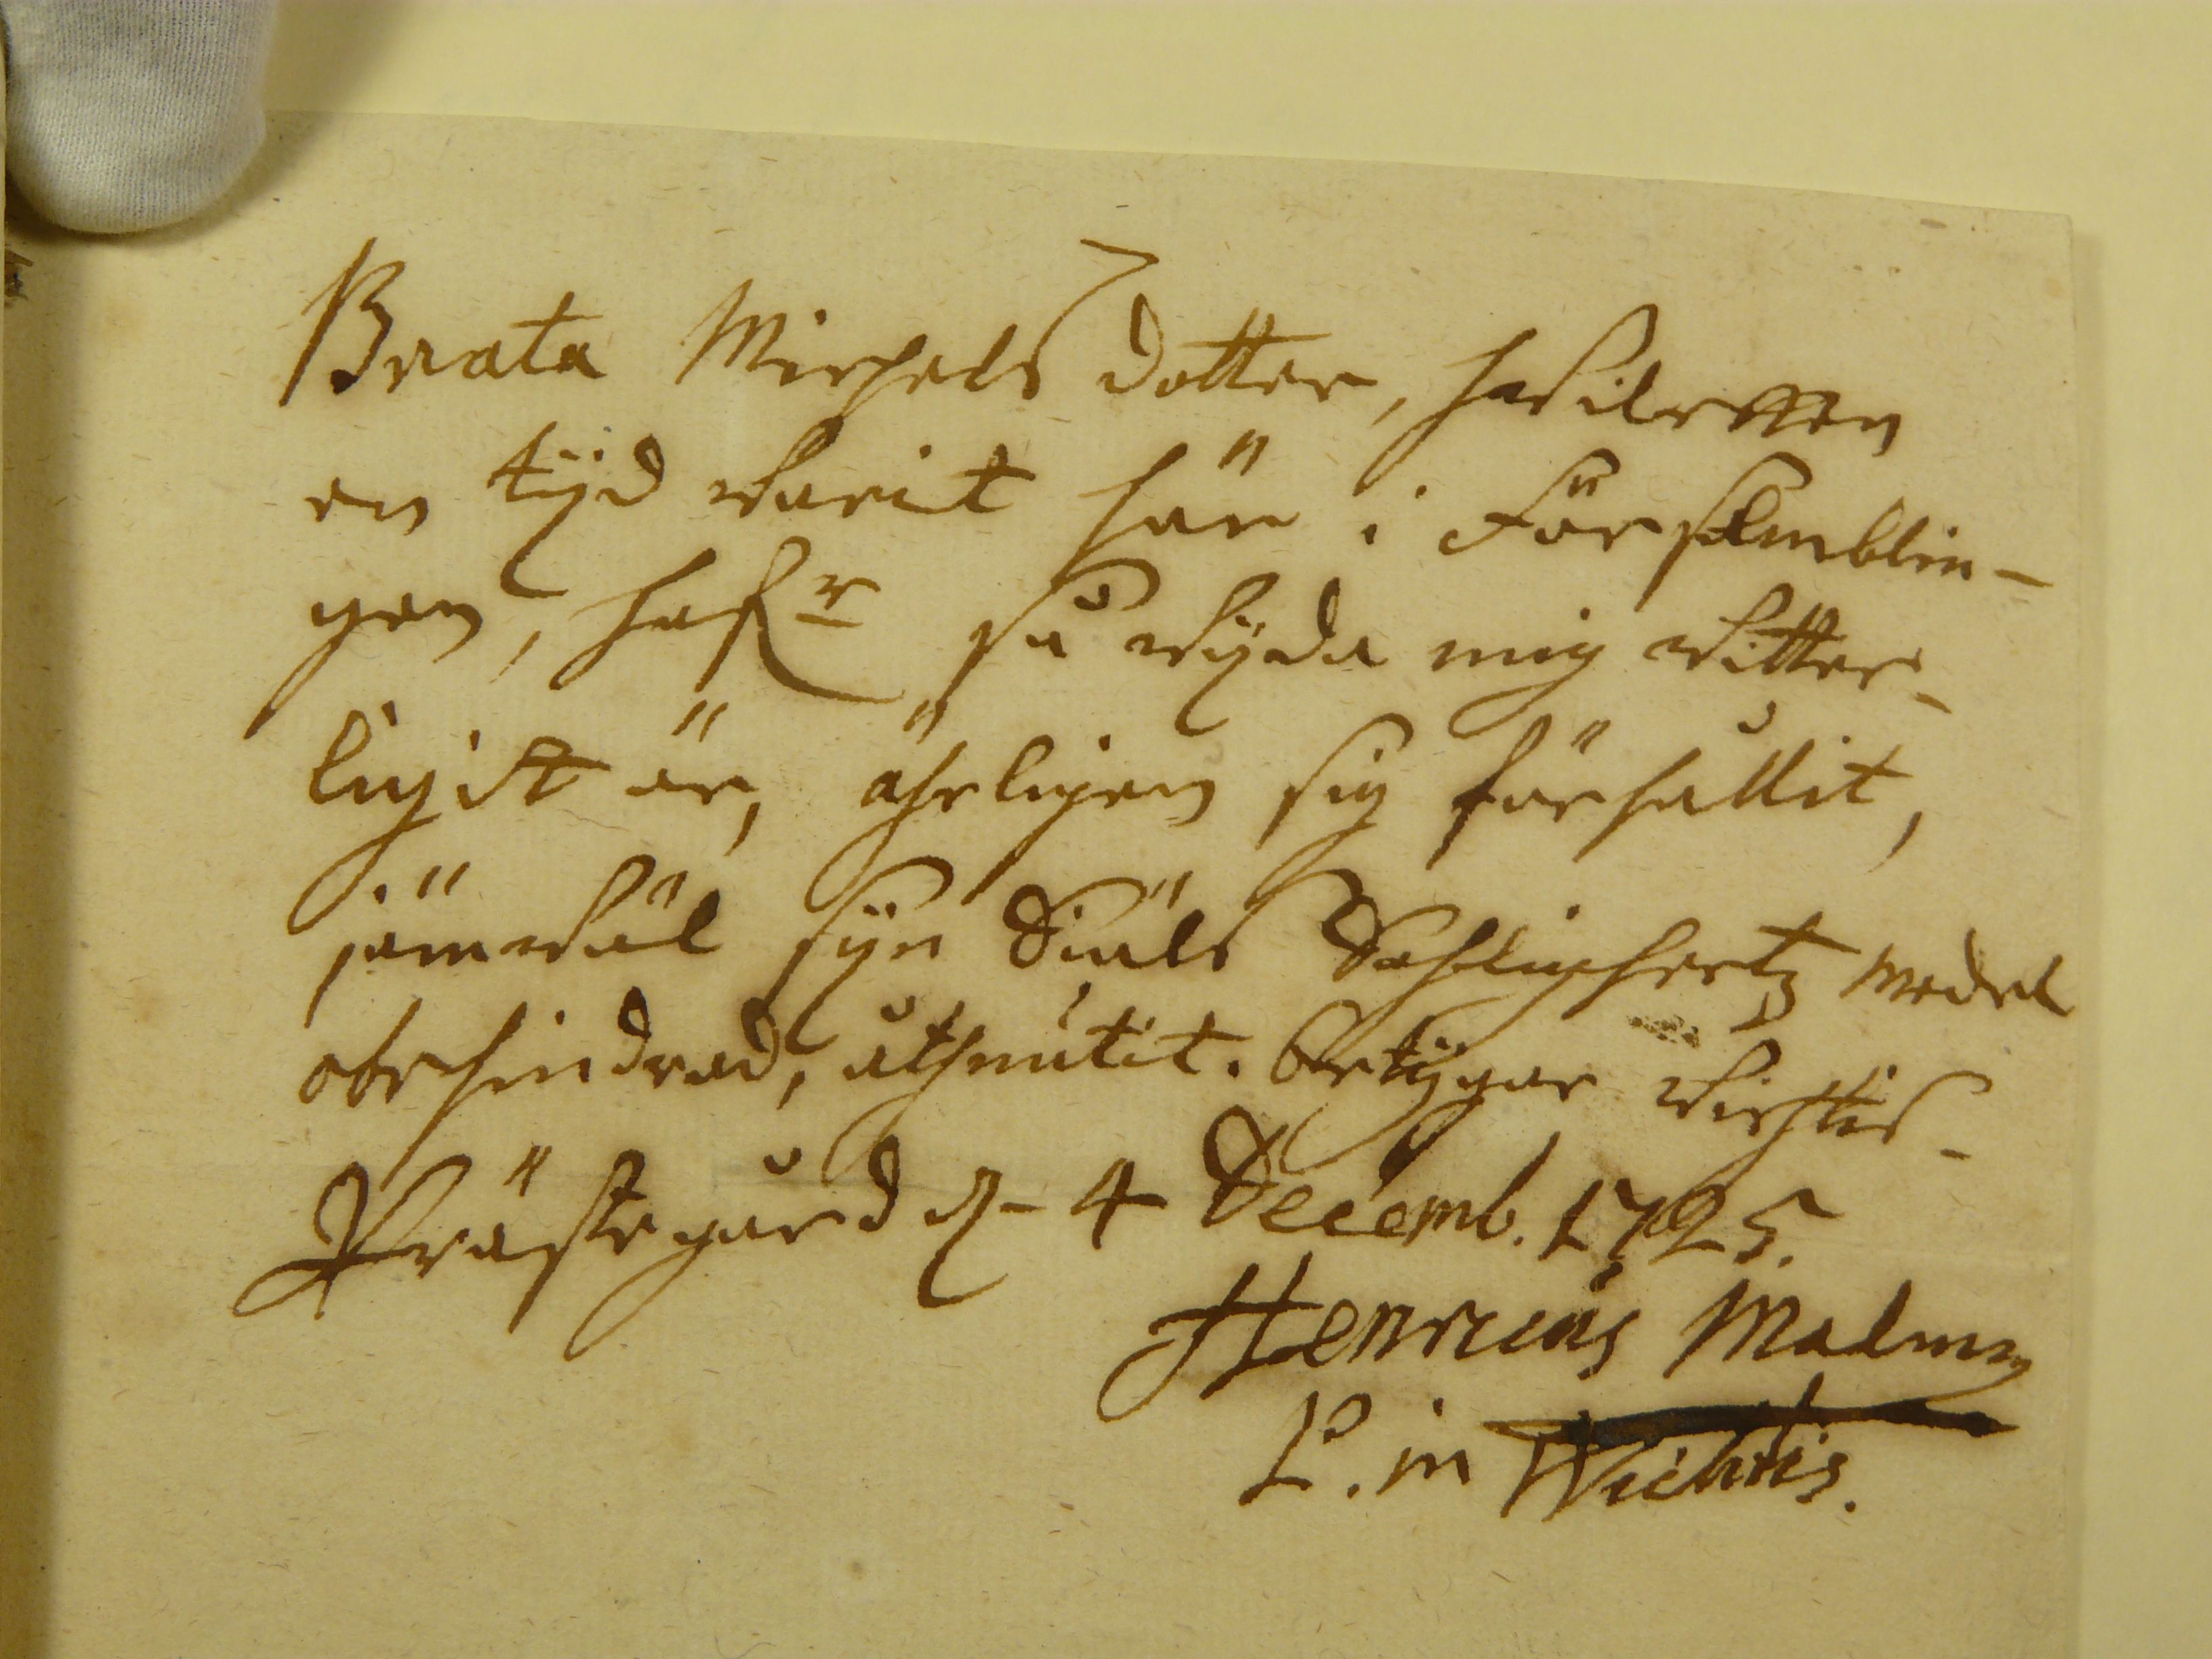 Breata Michels dotter, hwilcken
en tijd warit här i Församblin-
gen, hafr så wijda mig witter-
ligit är, ährligen sig förhållit,
jämwäl sijn Siäls Sahligheetz medel
obehindrad, åthniutit. betÿgar Wichtis
Prästegård d. 4 Decemb. 1725.
Henricus Malmen
P. in Wichtis.